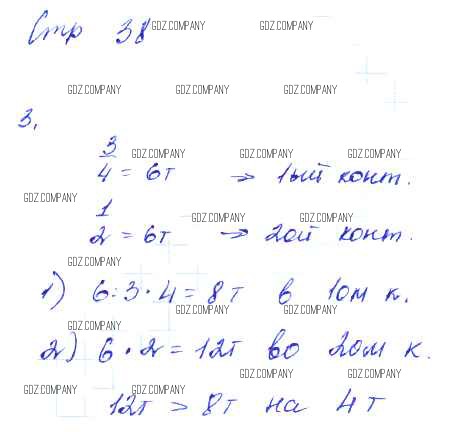 Стр 38 GDZ.COMPANY GDZ.COMPANY
GDZ.COMPANY GDZ.COMPANY GDZ.COMPANY
3.
3 GDZ.COMPANY GDZ.COMPANY GDZ.COMPANY
4 = 6т → 1ый конт.
GDZ.COMPANY
1 GDZ.COMPANY GDZ.COMPANY
2 = 6т → 2ой конт.
GDZ.COMPANY
1) 6:3·4=8т в 1ом к.
GDZ.COMPANY GDZ.COMPANY
GDZ.COMPANY
2) 6·2=12т во 2ом к.
GDZ.COMPANY GDZ.COMPANY GDZ.COMPANY
12т > 8т на 4т